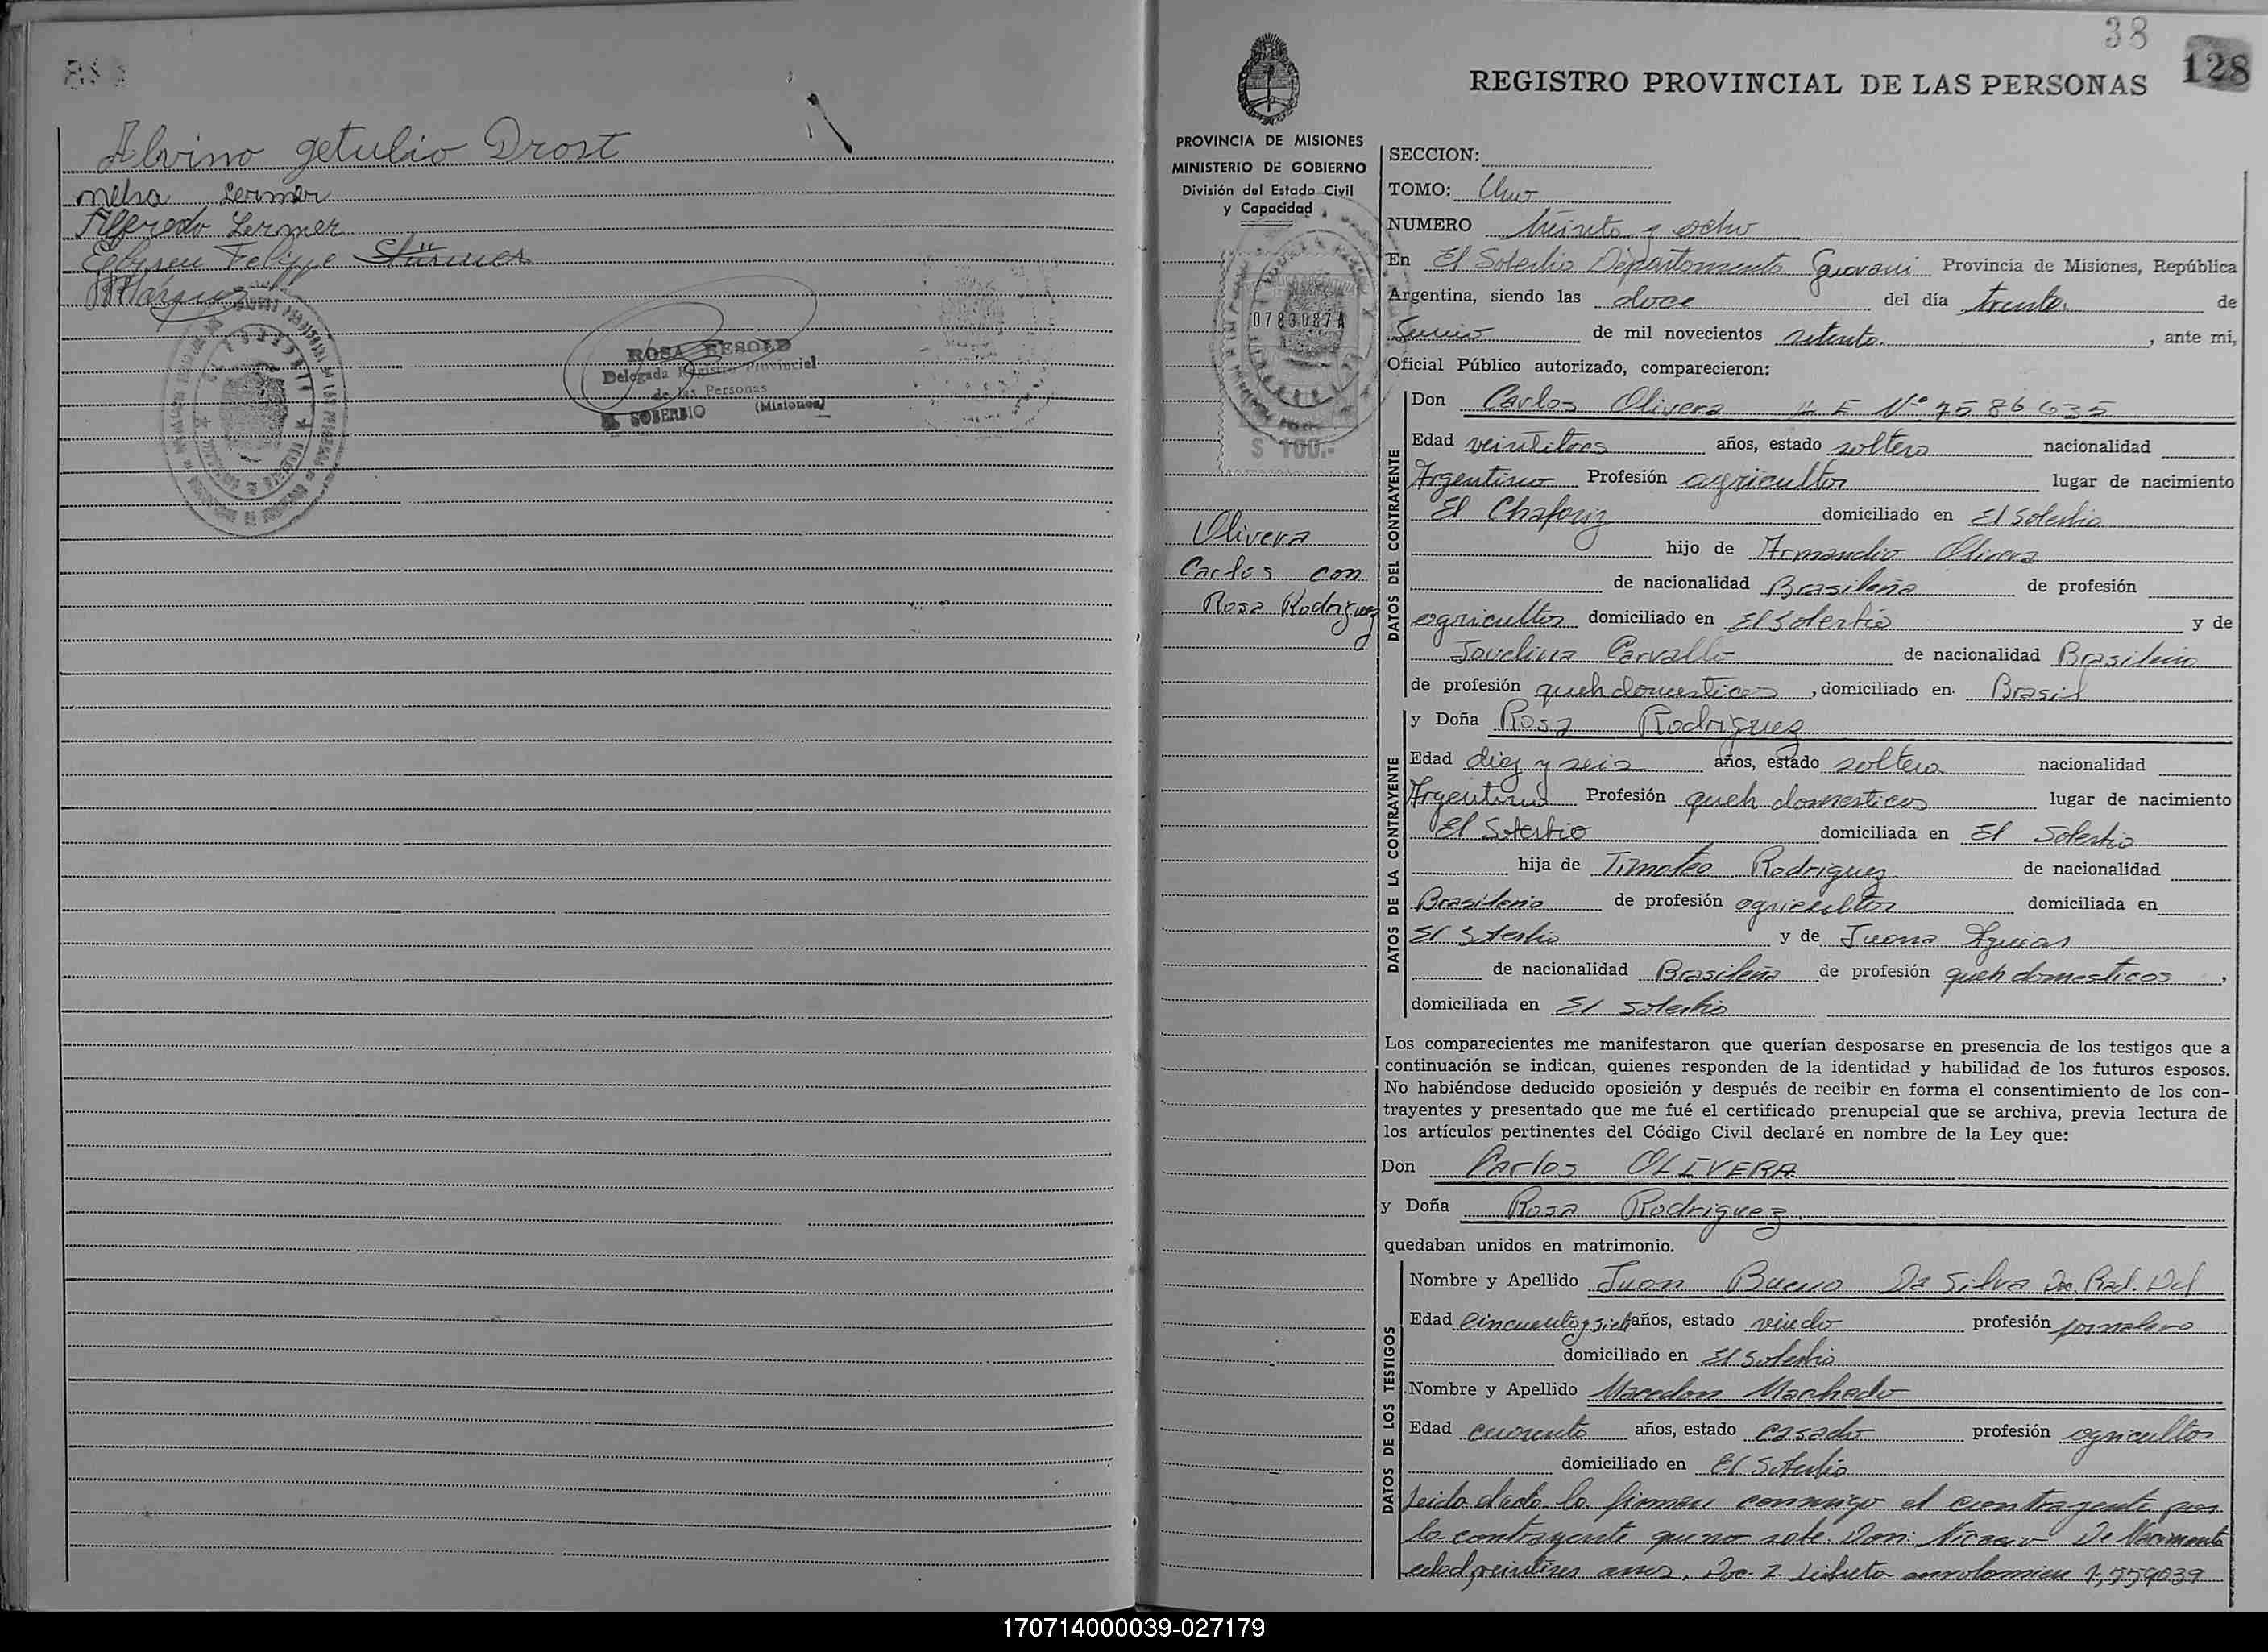 Alvino getulio Drost
nelsa Lermer
Alfredo Lermer
Felippe
Marquez
ROSA
Delegada Registro Provincial
de las Personas
EL SOBERBIO (Misiones)
38
128
REGISTRO PROVINCIAL DE LAS PERSONAS
PROVINCIA DE MISIONES
MINISTERIO DE GOBIERNO
División del Estado Civil
y Capacidad
0783087A
$ 100.-
Olivera
Carlos con
Rosa Rodriguez
SECCION:
TOMO: Uno
NUMERO treinta y ocho
En El Soberbio Departamento Guarani Provincia de Misiones, República
Argentina, siendo las doce del día treinta de
Junio de mil novecientos setenta , ante mi,
Oficial Público autorizado, comparecieron:
DATOS DEL CONTRAYENTE
Don Carlos Olivera L E Nº 7586635
Edad veintitres años, estado soltero nacionalidad
Argentino Profesión agricultor lugar de nacimiento
El Chafariz domiciliado en El Soberbio
hijo de Armandio Olivera
de nacionalidad Brasileña de profesión
agricultor domiciliado en El Soberbio y de
Jovelina Carvallo de nacionalidad Brasileña
de profesión queh domesticos , domiciliado en Brasil
DATOS DE LA CONTRAYENTE
y Doña Rosa Rodriguez
Edad diez y seis años, estado soltera nacionalidad
Argentina Profesión queh domesticos lugar de nacimiento
El Soberbio domiciliada en El Soberbio
hija de Timoteo Rodriguez de nacionalidad
Brasileña de profesión agricultor domiciliada en
El Soberbio y de Juana
de nacionalidad Brasileña de profesión queh domesticos ,
domiciliada en El Soberbio
Los comparecientes me manifestaron que querían desposarse en presencia de los testigos que a
continuación se indican, quienes responden de la identidad y habilidad de los futuros esposos.
No habiéndose deducido oposición y después de recibir en forma el consentimiento de los con-
trayentes y presentado que me fué el certificado prenupcial que se archiva, previa lectura de
los artículos pertinentes del Código Civil declaré en nombre de la Ley que:
Don Carlos OLIVERA
y Doña Rosa Rodriguez
quedaban unidos en matrimonio.
DATOS DE LOS TESTIGOS
Nombre y Apellido Juan Bueno Da Silva Doc. Rad. Def
Edad cincuenta y siete años, estado viudo profesión jornalero
domiciliado en El Soberbio
Nombre y Apellido Macedon Machado
Edad cuarenta años, estado casado profesión agricultor
domiciliado en El Soberbio
Leida el acta la firman conmigo el contrayente por
la contrayente que no sabe Don: Nicacio De Nacimento
edad veintitres anos, Doc
170714000039-027179